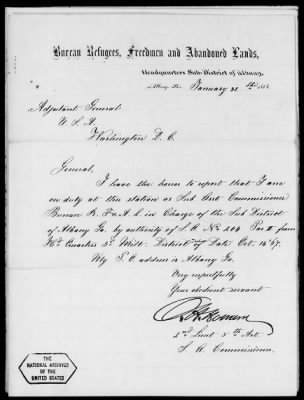 Bureau Refugees, Freedmen and Abandoned Lands,
Headquarters Sub-District of Albany,
Albany Ga. January 31st 186
Adjutant General
U. S. A
Washington D. C.
General,
I have the honor to report that I am
on duty at this station as Sub Asst Commissioner
Bureau R. F & A. L in Charge of the Sub District
of Albany Ga. by authority of S. O. No 204 Par II from
Hd Quarters 3rd Milt. District of Date Oct. 14" 67.
My P. O. address is Albany Ga.
Very respectfully
Your obedient servant
2nd Lieut 5th Art
S. A. Commissioner.
THE
NATIONAL ARCHIVES
OF THE
UNITED STATES